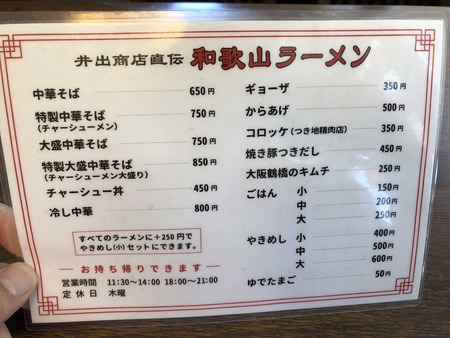 井出商店直伝 和歌山ラーメン
中華そば 650円
特製中華そば 750円
(チャーシューメン)
大盛中華そば 750円
特製大盛中華そば 850円
(チャーシューメン大盛り)
チャーシュー丼 450円
冷し中華 800円
すべてのラーメンに+250円で
やきめし(小)セットにできます。
お持ち帰りできます
営業時間 11:30~14:00 18:00~21:00
定休日 木曜
ギョーザ 350円
からあげ 500円
コロッケ(つき地精肉店) 350円
焼き豚つきだし 450円
大阪鶴橋のキムチ 250円
ごはん 小 150円
中 200円
大 250円
やきめし 小 400円
中 500円
大 600円
ゆでたまご 50円